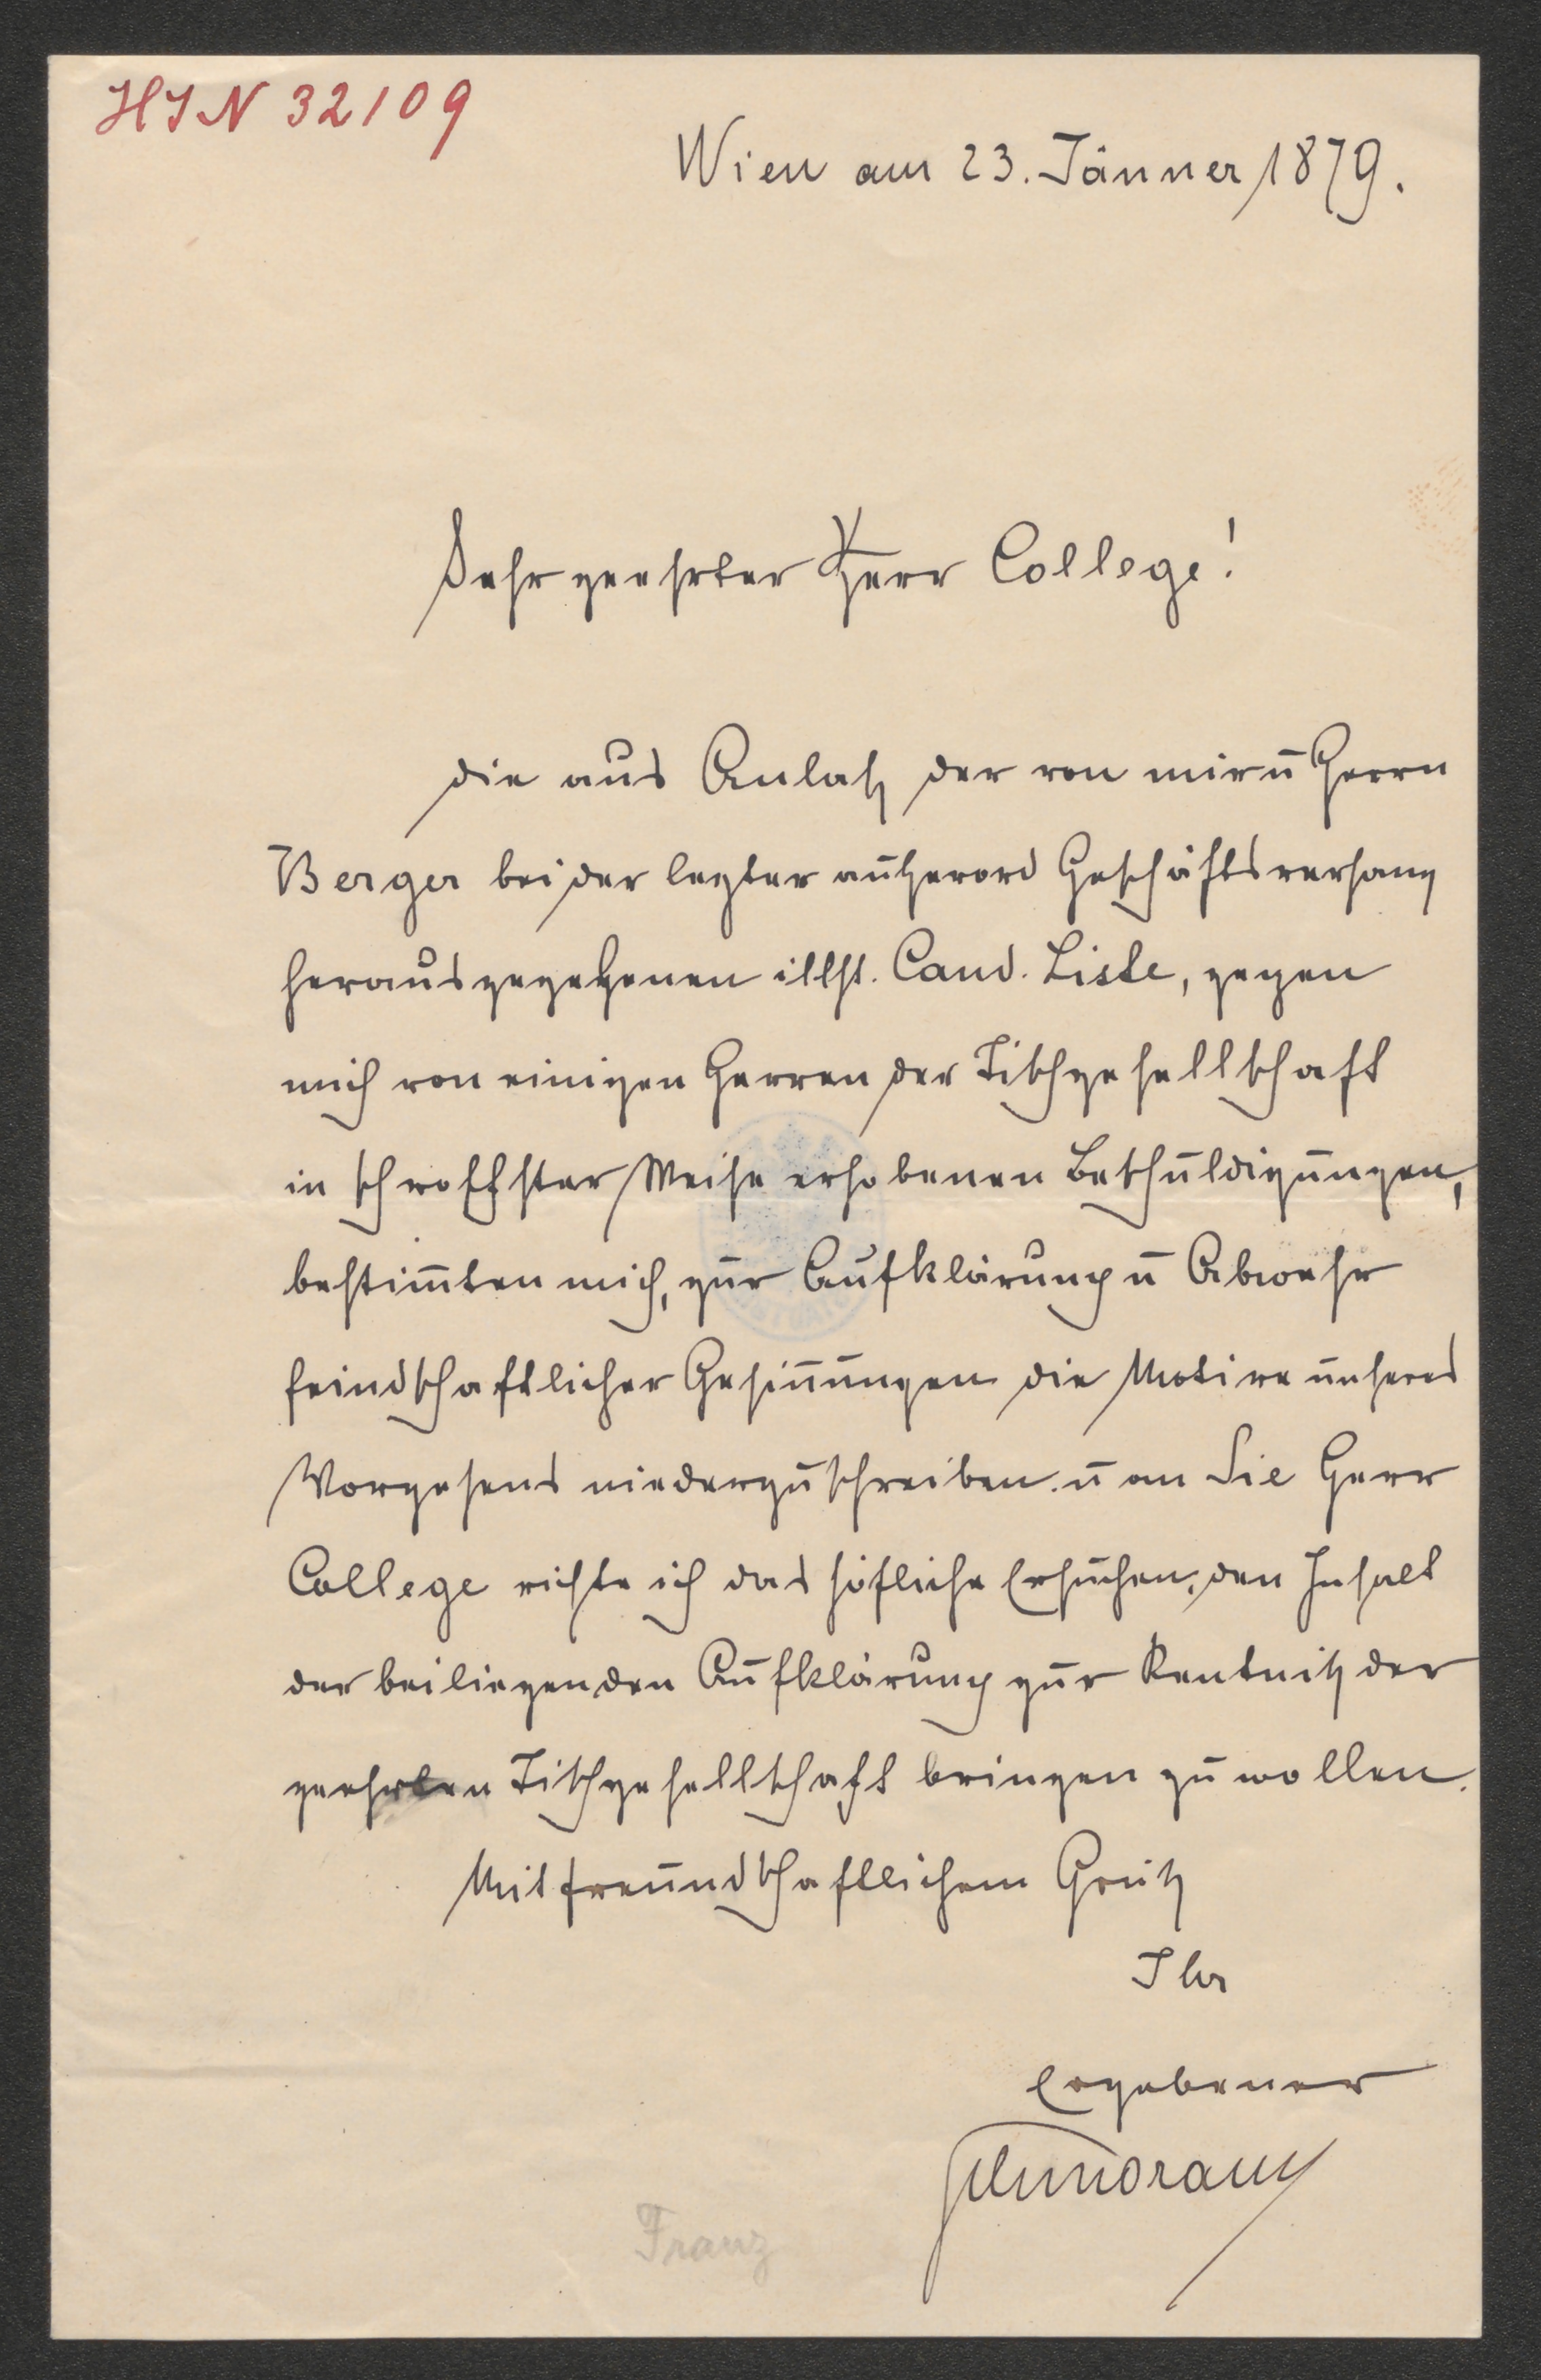 HIN 32109
Wien am 23. Jänner 1879.
Sehr geehrter Herr College!
die aus Anlaß der von mir ū Herrn
Berger bei der lezter außerord Geschäftsversamg
herausgegebenen illst. Cand. Liste, gegen
mich von einigen Herren der Tischgesellschaft
in schroffster Weise erhobenen Beschuldigungen,
bestim̄ten mich, zur Aufklärung ū Abwehr
feindschaftlicher Gesin̄ungen die Motive unseres
Vorgehens niederzuschreiben. ū an Sie Herr
College richte ich das höfliche Ersuchen, den Inhalt
der beiliegenden Aufklärung zur Kentniß der
geehrten Tischgesellschaft bringen zu wollen.
Mit freundschaftlichem Gruß
Ihr
Ergebener
Franz